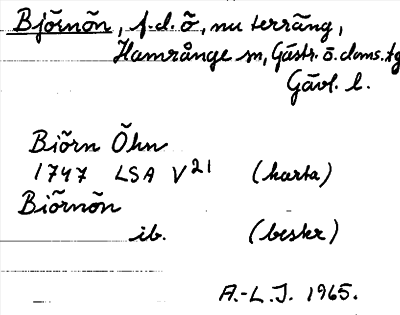 Björnön, f.d. ö, nu terräng,
Hamrånge sn, Gästr. ö. doms. tg
Gävl. l.
Biörn Öhn
1747 LSA V21 (karta)
Biörnön
ib. (beskr)
A.-L.J. 1965.